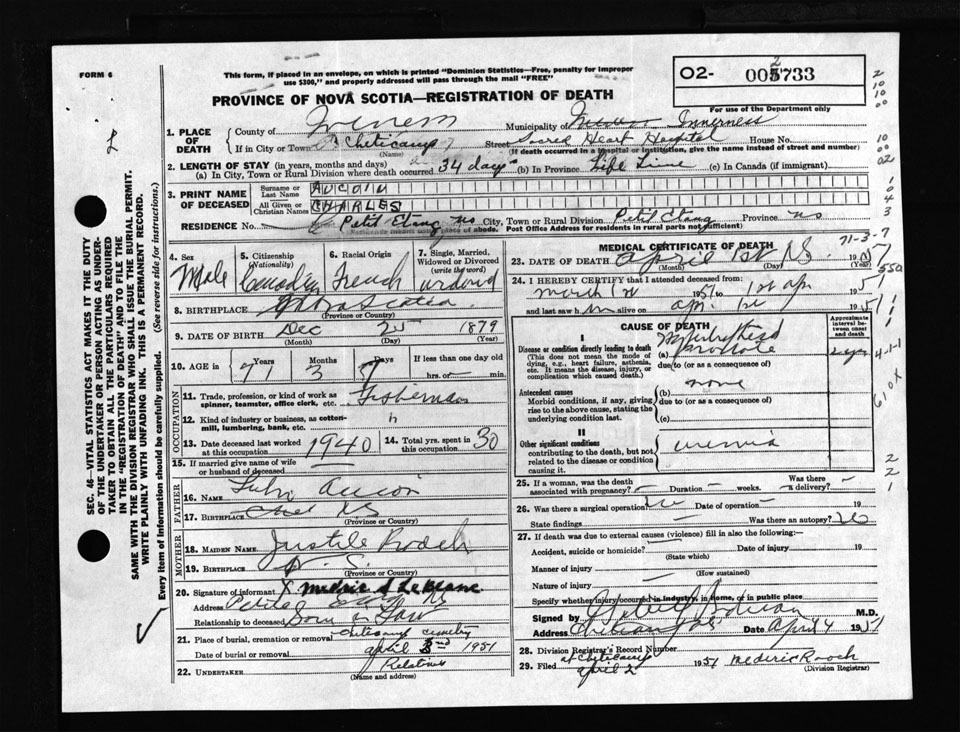 FORM 6
This form, if placed in an envelope, on which is printed "Dominion Statistics—Free, penalty for improper
use $300," and properly addressed will pass through the mail "FREE"
O2- 005733
2
PROVINCE OF NOVA SCOTIA—REGISTRATION OF DEATH
For use of the Department only
1. PLACE OF DEATH
County of Inverness Municipality of Inverness
If in City or Town Cheticamp (Name) Street Heart Hospital House No.
(If death occurred in a hospital or institution, give the name instead of street and number)
2. LENGTH OF STAY (in years, months and days)
(a) In City, Town or Rural Division where death occurred 34 days (b) In Province Life Time (c) In Canada (if immigrant)
3. PRINT NAME OF DECEASED
Surname or Last Name AUCOIN
All Given or Christian Names CHARLES
RESIDENCE No. Petit Etang NS City, Town or Rural Division Petit Etang Province NS
place of abode. Post Office Address for residents in rural parts not sufficient)
4. Sex Male
5. Citizenship (Nationality) Canadian
6. Racial Origin French
7. Single, Married, Widowed or Divorced (write the word)
8. BIRTHPLACE Nova Scotia
(Province or Country)
9. DATE OF BIRTH Dec 25 1879
(Month) (Day) (Year)
10. AGE in Years 71 Months 3 Days 7 If less than one day old
hrs. or min.
OCCUPATION
11. Trade, profession, or kind of work as
spinner, teamster, office clerk, etc. Fisherman
12. Kind of industry or business, as cotton-
mill, lumbering, bank, etc.
13. Date deceased last worked
at this occupation 1940
14. Total yrs. spent in
this occupation 30
15. If married give name of wife
or husband of deceased
FATHER
16. NAME Aucoin
17. BIRTHPLACE NS
(Province or Country)
MOTHER
18. MAIDEN NAME Justile Roach
19. BIRTHPLACE N. S.
(Province or Country)
20. Signature of informant X Medric J LeBlanc
Address Petit Etang NS
Relationship to deceased Son in Law
21. Place of burial, cremation or removal Cheticamp cemetery
Date of burial or removal April 3rd 1951
22. UNDERTAKER Relatives
(Name and address)
MEDICAL CERTIFICATE OF DEATH
71-3-7
23. DATE OF DEATH April 1st 1951
(Month) (Day) (Year)
24. I HEREBY CERTIFY that I attended deceased from:
March 1st 1951 to 1st Apr 1951
and last saw him alive on Apr 1st 1951
CAUSE OF DEATH
Approximate interval between onset and death
I
Disease or condition directly leading to death
(This does not mean the mode of
dying, e.g., heart failure, asthenia,
etc. It means the disease, injury, or
complication which caused death.)
(a) prostate
due to (or as a consequence of)
Antecedent causes
Morbid conditions, if any, giving
rise to the above cause, stating the
underlying condition last.
(b) none
due to (or as a consequence of)
(c)
II
Other significant conditions
contributing to the death, but not
related to the disease or condition
causing it.
uremia
25. If a woman, was the death
associated with pregnancy? Duration weeks Was there
a delivery?
26. Was there a surgical operation? Date of operation
State findings Was there an autopsy? No
27. If death was due to external causes (violence) fill in also the following:
Accident, suicide or homicide? Date of injury 19
(State which)
Manner of injury
(How sustained)
Nature of injury
Specify whether injury occurred in industry, in home, or in public place
Signed by M.D.
Address Cheticamp NS Date April 4 1951
28. Division Registrar's Record Number
29. Filed at Cheticamp April 2 1951 Mederic Roach
(Division Registrar)
SEC. 46—VITAL STATISTICS ACT MAKES IT THE DUTY
OF THE UNDERTAKER OR PERSON ACTING AS UNDER-
TAKER TO OBTAIN ALL THE PARTICULARS REQUIRED
IN THE "REGISTRATION OF DEATH" AND TO FILE THE
SAME WITH THE DIVISION REGISTRAR WHO SHALL ISSUE THE BURIAL PERMIT.
WRITE PLAINLY WITH UNFADING INK. THIS IS A PERMANENT RECORD.
Every item of Information should be carefully supplied. (See reverse side for instructions.)